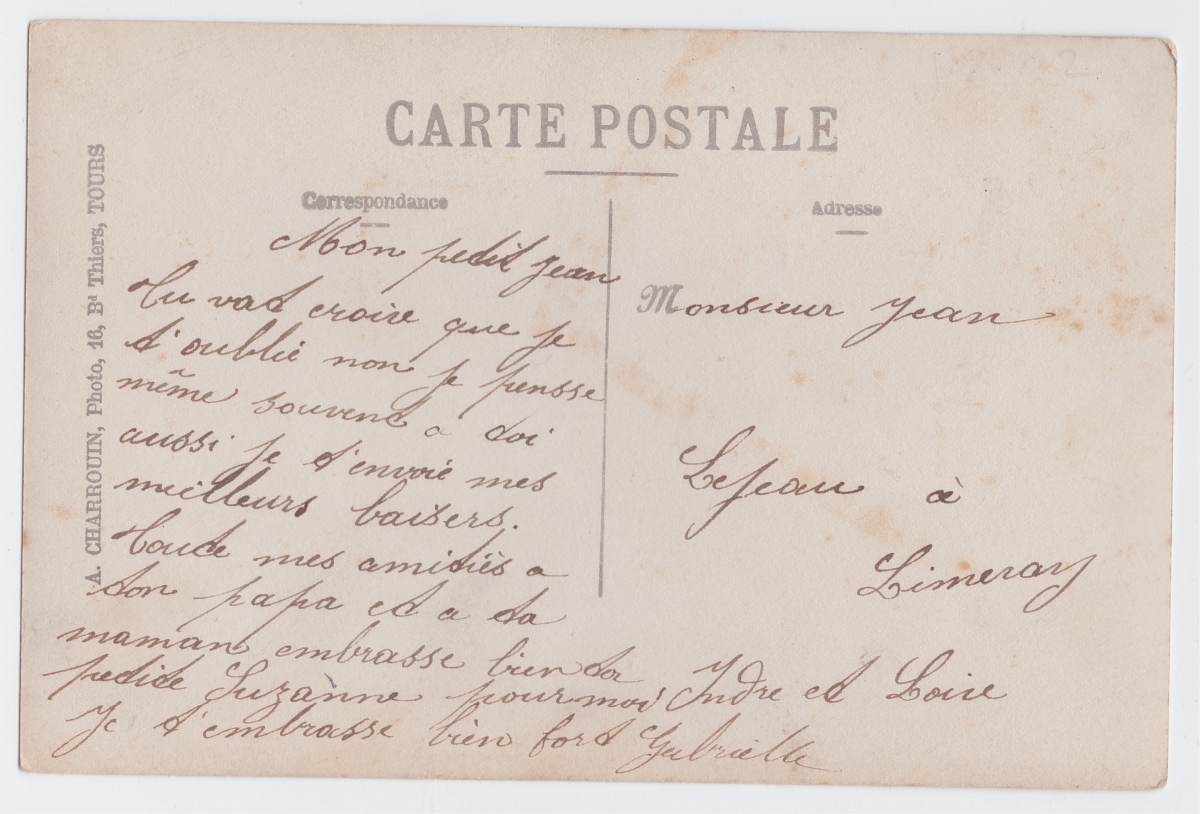 CARTE POSTALE
Correspondance
Adresse
A. CHARROUIN, Photo, 16, Bd Thiers, TOURS
Mon petit Jean
Tu vat croire que je
t'oublie non je pensse
même souvent a toi
aussi je t'envoie mes
meilleurs baisers.
Toute mes amitiès a
ton papa et a ta
maman embrasse bien ta
petite Suzanne pour moi
Je t'embrasse bien fort Gabrielle
Monsieur Jean
Lejeau à
Limeray
Indre et Loire